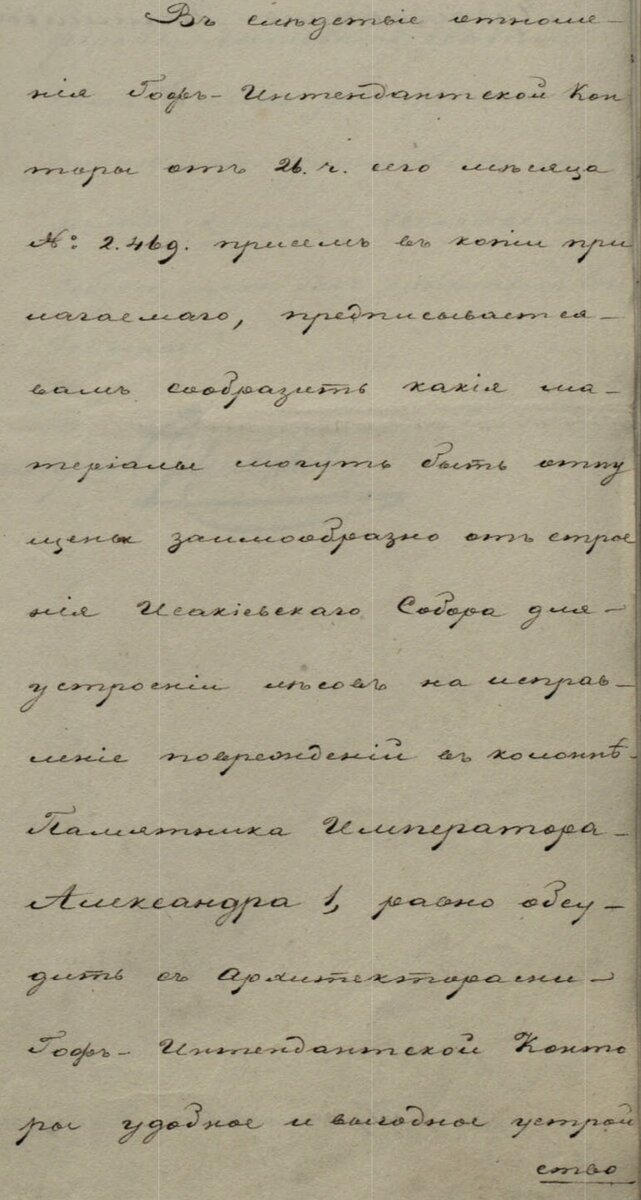 Въ слѣдствіе отноше-
нія Гофъ-Интендантской Кон
торы отъ 26. ч. сего мѣсяца
№: 2.469. присемъ въ копіи при
лагаемаго, предписывается-
вамъ сообразить какія ма-
теріалы могутъ быть отпу
щены заимообразно отъ строе
нія Исакіевскаго Собора для-
устроеніи лѣсовъ на исправ-
леніе поврежденій въ колоннѣ-
Памятника Императора-
Александра 1, равно обсу-
дить съ Архитекторами-
Гофъ-Интендантской Конто
ры удобное и выгодное устрой
ство